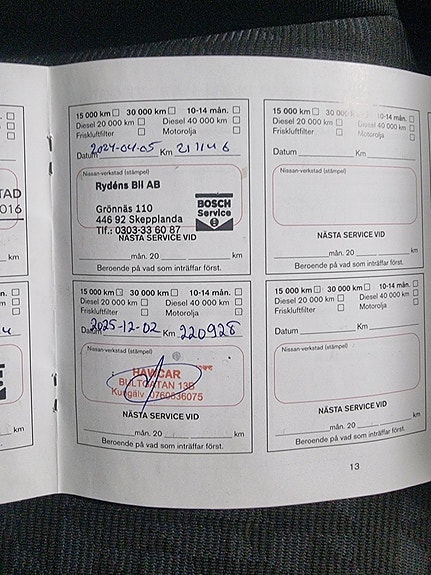 TAD
016
km
km
15 000 km 30 000 km 10-14 mån.
Diesel 20 000 km Diesel 40 000 km
Friskluftfilter Motorolja
Datum 2024-04-05 Km 211146
Nissan-verkstad (stämpel)
Rydéns Bil AB
Grönnäs 110
446 92 Skepplanda
Tlf.: 0303-33 60 87
BOSCH
Service
NÄSTA SERVICE VID
mån. 20 km
Beroende på vad som inträffar först.
15 000 km 30 000 km 10-14 mån.
Diesel 20 000 km Diesel 40 000 km
Friskluftfilter Motorolja
Datum Km
Nissan-verkstad (stämpel)
NÄSTA SERVICE VID
mån. 20 km
Beroende på vad som inträffar först.
15 000 km 30 000 km 10-14 mån.
Diesel 20 000 km Diesel 40 000 km
Friskluftfilter Motorolja
Datum 2025-12-02 Km 220928
Nissan-verkstad (stämpel)
HAWCAR
BULTGATAN 13B
Kungälv 0760836075
NÄSTA SERVICE VID
mån. 20 km
Beroende på vad som inträffar först.
15 000 km 30 000 km 10-14 mån.
Diesel 20 000 km Diesel 40 000 km
Friskluftfilter Motorolja
Datum Km
Nissan-verkstad (stämpel)
NÄSTA SERVICE VID
mån. 20 km
Beroende på vad som inträffar först.
13